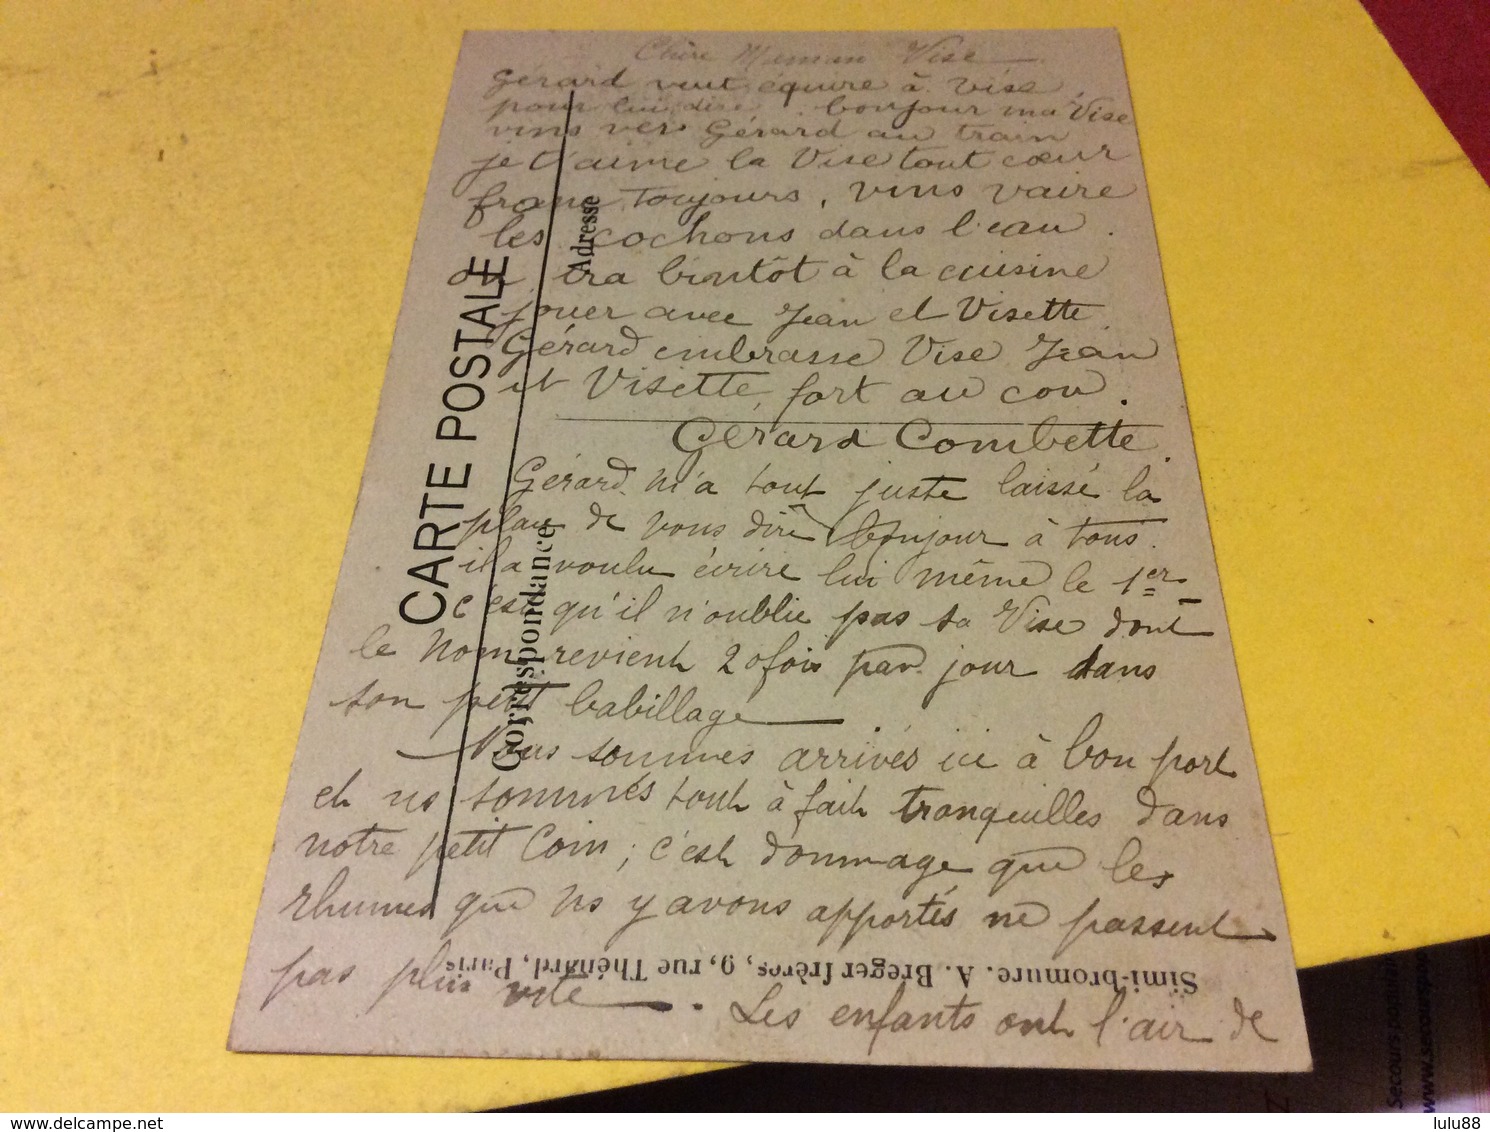 Chère Maman Vise
Gérard veut équire à Vise
pour lui dire bonjour ma Vise
vins ver Gérard au train
je t'aime la Vise tout cœur
franc toujours, vins vaire
les cochons dans l'eau.
on ira bientôt à la cuisine
jouer avec Jean et Visette
Gérard embrasse Vise Jean
et Visette, fort au cou.
Gérard Combette.
Gérard m'a tout juste laissé la
place de vous dire bonjour à tous.
il a voulu écrire lui même le 1er
c'est qu'il n'oublie pas sa Vise dont
le nom revient 20 fois par jour dans
son petit babillage.
Nous sommes arrivés ici à bon port
et ns sommes tout à fait tranquilles dans
notre petit Coin; c'est dommage que les
rhumes que ns y avons apportés ne passent
pas plus vite. Les enfants ont l'air de
CARTE POSTALE
Correspondance
Adresse
Simi-bromure. A. Breger frères, 9, rue Thénard, Paris
Secours
www.secours
lulu88